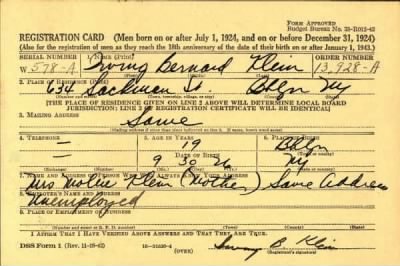 FORM APPROVED
Budget Bureau No. 33-R012-42
REGISTRATION CARD (Men born on or after July 1, 1924, and on or before December 31, 1924)
(Also for the registration of men as they reach the 18th anniversary of the date of their birth on or after January 1, 1943.)
SERIAL NUMBER 1. NAME (Print) ORDER NUMBER
W 578-A Irving Bernard Klein 13,928-A
2. PLACE OF RESIDENCE (Print)
634 Sackman St. Bklyn Ny
[THE PLACE OF RESIDENCE GIVEN ON LINE 2 ABOVE WILL DETERMINE LOCAL BOARD
JURISDICTION; LINE 2 OF REGISTRATION CERTIFICATE WILL BE IDENTICAL]
3. MAILING ADDRESS
Same
4. TELEPHONE 5. AGE IN YEARS 6. PLACE OF BIRTH
— 19 Bklyn
DATE OF BIRTH
— 9 30 26 Ny
7. NAME AND ADDRESS OF PERSON WHO WILL ALWAYS KNOW YOUR ADDRESS
Mrs Mollie Klein (Mother) Same Address
8. EMPLOYER'S NAME AND ADDRESS
Unemployed
9. PLACE OF EMPLOYMENT OR BUSINESS
I AFFIRM THAT I HAVE VERIFIED ABOVE ANSWERS AND THAT THEY ARE TRUE.
DSS Form 1 (Rev. 11-16-42) (OVER) Irving B. Klein
(Registrant's signature)